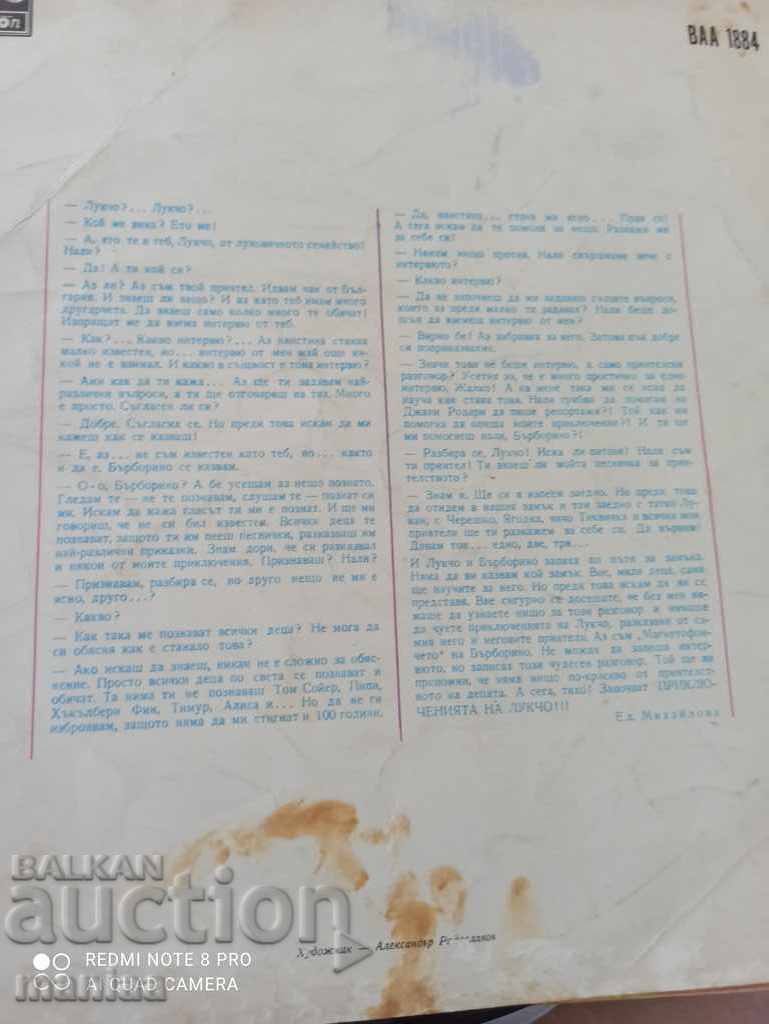 ВАА 1884
— Лукчо?... Лукчо?...
— Кой ме вика? Ето ме!
— А, ето те и теб, Лукчо, от лукчовичното семейство!
Нали?
— Да! А ти кой си?
— Аз ли? Аз съм твой приятел. Идвам чак от Бъл-
гария. И знаеш ли нещо? И аз като теб имам много
другарчета. Да знаеш само колко много те обичат!
Изпращат ме да взема интервю от теб.
— Как?... Какво интервю?... Аз наистина станах
малко известен, но... интервю от мен май още ни-
кой не е вземал. И какво в същност е това интервю?
— Ами как да ти кажа... Аз ще ти задавам най-
различни въпроси, а ти ще отговаряш на тях. Много
е просто. Съгласен ли си?
— Добре. Съгласих се. Но преди това искам да ми
кажеш как се казваш!
— Е, аз... не съм известен като теб, но... както
и да е. Бърборино се казвам.
— О-о, Бърборино? А бе усещам аз нещо познато.
Гледам те — не те познавам, слушам те — познат си
ми. Искам да кажа гласът ти ми е познат. И ще ми
говориш, че не си бил известен. Всички деца те
познават, защото ти им пееш песнички, разказваш им
най-различни приказки. Знам дори, че си разказвал
и някои от моите приключения. Признаваш? Нали?
— Признавам, разбира се, но друго нещо не ми е
ясно, друго...?
— Какво?
— Как така ме познават всички деца? Не мога да
си обясня как е станало това?
— Ако искаш да знаеш, никак не е сложно за обяс-
нение. Просто всички деца по света се познават и
обичат. Та нима ти не познаваш Том Сойер, Пипи,
Хъкълбери Фин, Тимур, Алиса и... Но да не ги
изброявам, защото няма да ми стигнат и 100 години.
— Да, наистина... стана ми ясно... Прав си!
А сега искам да те помоля за нещо. Разкажи ми
за себе си!
— Имам нещо против. Нали свършихме вече с
интервюто?
— Какво интервю?
— Да не започнеш да ми задаваш същите въпроси,
които аз преди малко ти задавах? Нали беше до-
шъл да вземеш интервю от мен?
— Вярно бе! Аз забравих за него. Затова пък добре
си поприказвахме.
— Значи това не беше интервю, а само приятелски
разговор? Усетих аз, че е много простичко за едно
интервю. Жалко! А на мене така ми се иска да
науча как става това. Нали трябва да помагам на
Джани Родари да пише репортажи?! Той как ми
помогна да опиша моите приключения?! И ти ще
ми помогнеш нали, Бърборино?!
— Разбира се, Лукчо! Иска ли питане! Нали съм
ти приятел! Ти знаеш ли мойта песничка за прия-
телството?
— Знам я. Ще си я изпеем заедно. Но преди това
да отидем в нашия замък и там заедно с татко Лу-
кан, с Черешко, Ягодка, чичо Тиквичка и всички мои
приятели ще ти разкажем за себе си. Да вървим!
Давам тон... едно, две, три...
И Лукчо и Бърборино запяха по пътя за замъка.
Няма да ви казвам кой замък. Вие, мили деца, сами
ще научите за него. Но преди това искам да ви се
представя. Вие сигурно се досещате, че без мен ня-
маше да узнаете нищо за този разговор и нямаше
да чуете приключенията на Лукчо, разказани от са-
мия него и неговите приятели. Аз съм „Магнетофон-
чето" на Бърборино. Не можах да запиша интер-
вюто, но записах този чудесен разговор. Той ще ви
припомни, че няма нищо по-красиво от приятелст-
вото на децата. А сега, тихо! Започват ПРИКЛЮ-
ЧЕНИЯТА НА ЛУКЧО!!!
Ел. Михайлова
Художник — Александър
BALKAN
auction
REDMI NOTE 8 PRO
AI QUAD CAMERA